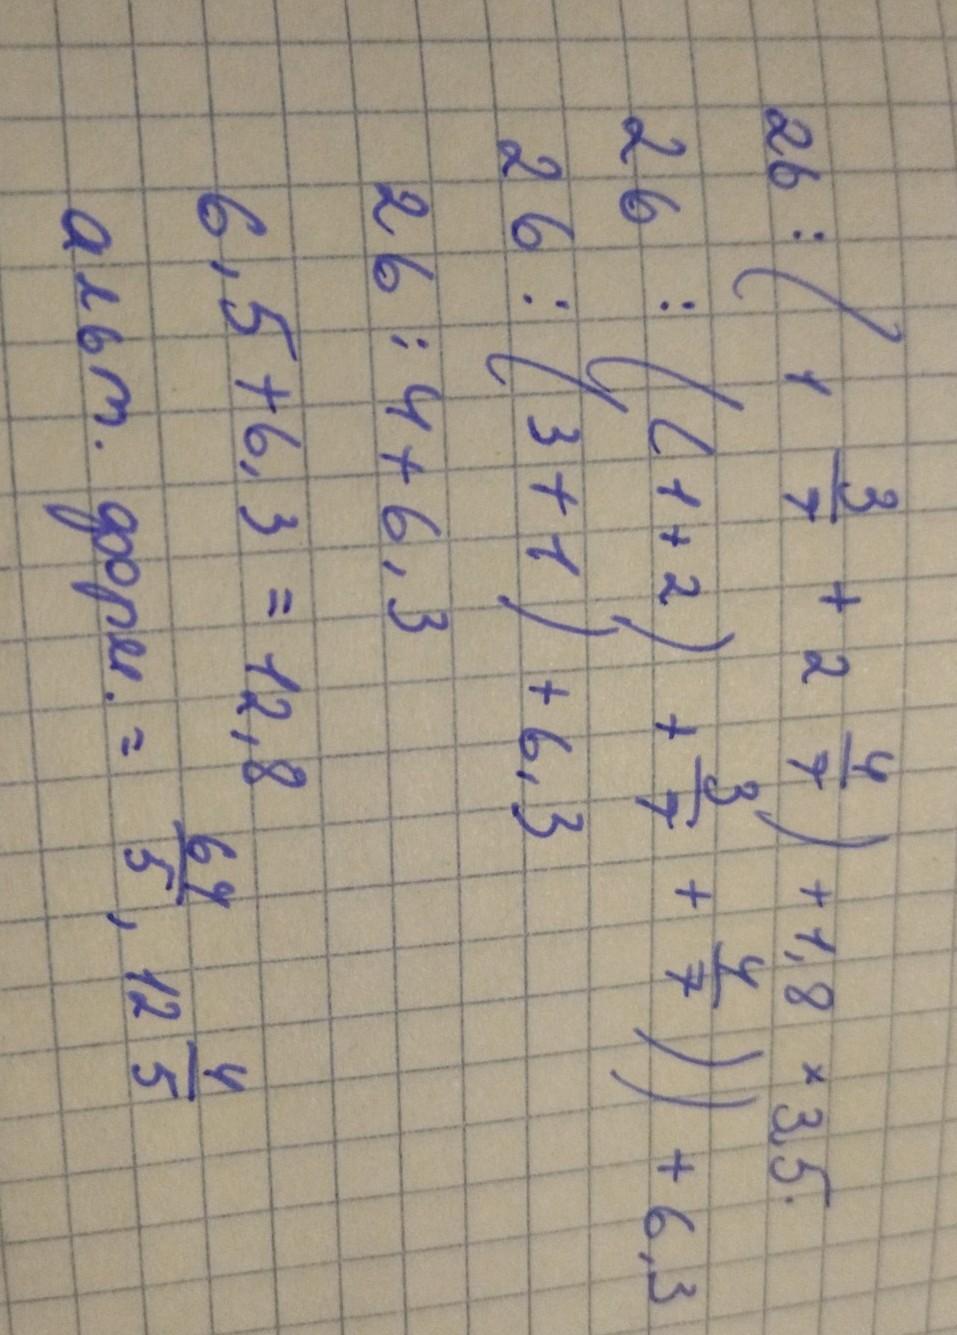 26 : ( 1 3/7 + 2 4/7 ) + 1,8 × 3,5.
26 : ( ( 1 + 2 ) + 3/7 + 4/7 ) ) + 6,3
26 : ( 3 + 1 ) + 6,3
26 : 4 + 6,3
6,5 + 6,3 = 12,8
альт. форм. = 64/5 , 12 4/5